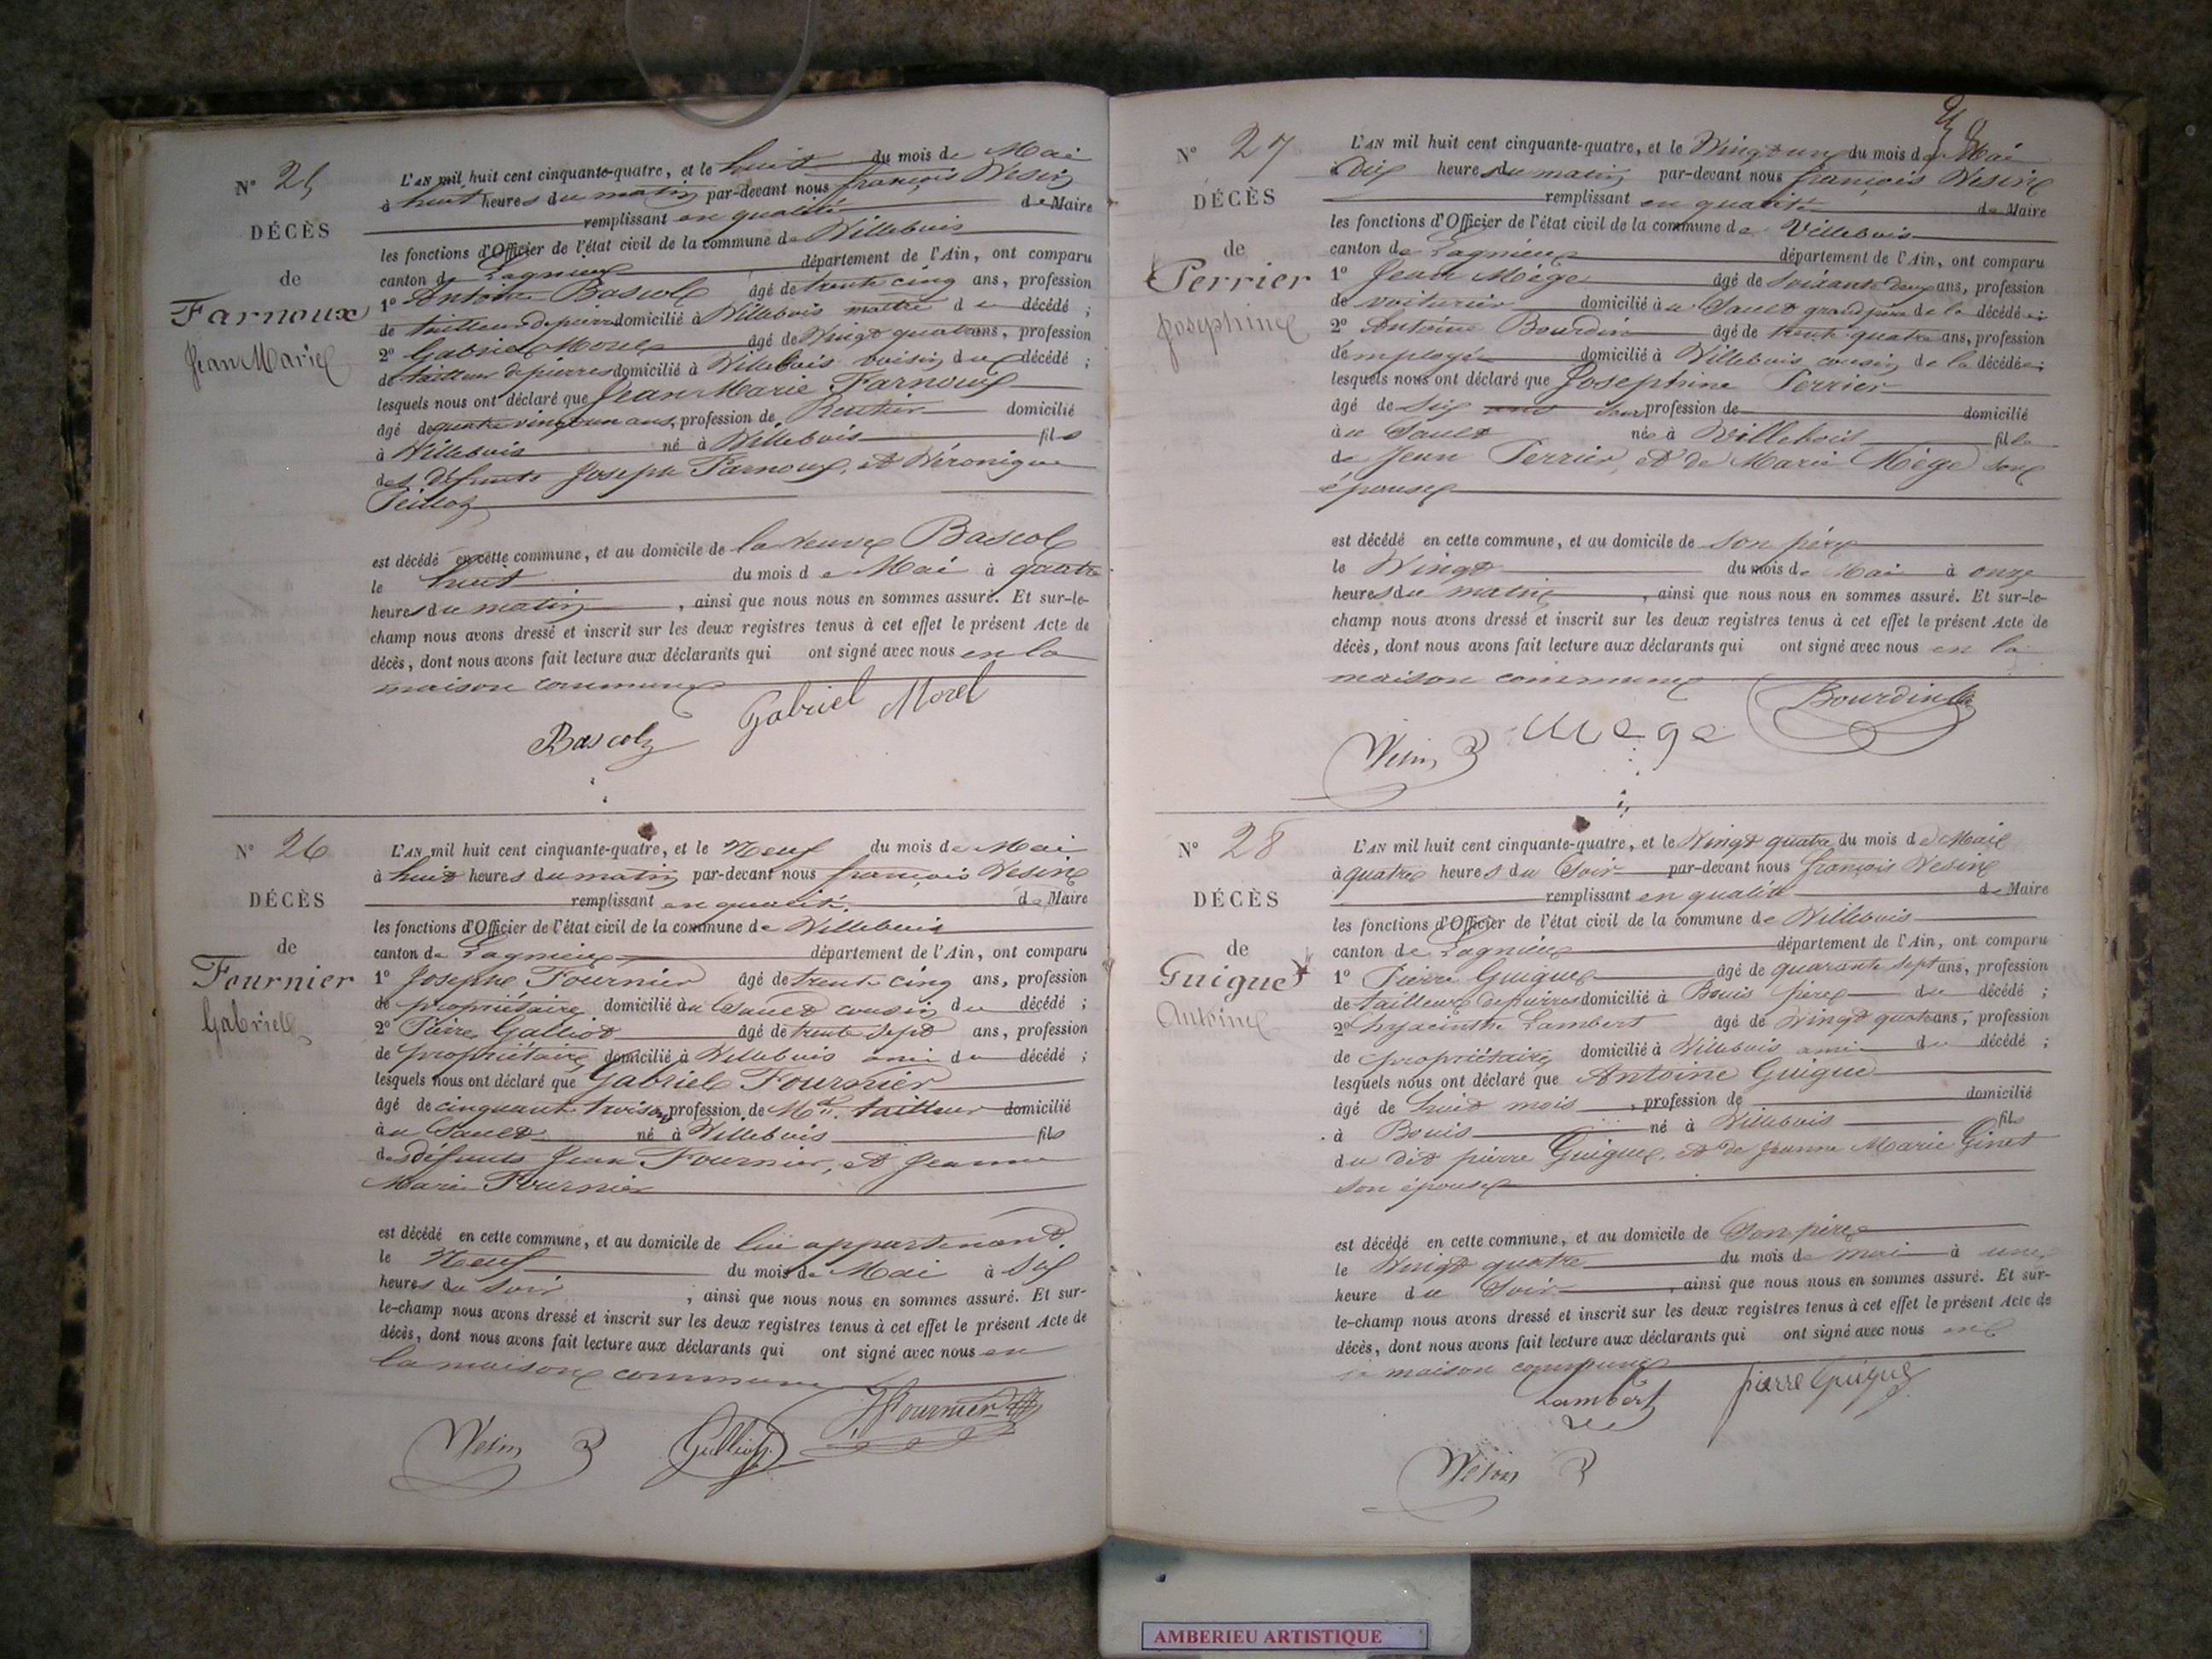 N° 25
DÉCÈS
de
Farnoux
Jean Marie
L'AN mil huit cent cinquante-quatre, et le huit du mois de Mai
à huit heures du matin par-devant nous françois Vesin
remplissant en qualité de Maire
les fonctions d'Officier de l'état civil de la commune de Villebois
canton de Lagnieu département de l'Ain, ont comparu
1° Antoine Bascol âgé de trente cinq ans, profession
de tailleur de pierre domicilié à Villebois maître du décédé ;
2° Gabriel Morel âgé de Vingt quatre ans, profession
de tailleur de pierres domicilié à Villebois voisin du décédé ;
lesquels nous ont déclaré que Jean Marie Farnoux
âgé de quatre vingt un ans, profession de Rentier domicilié
à Villebois né à Villebois fils
des défunts Joseph Farnoux, et Véronique
est décédé en cette commune, et au domicile de la Veuve Bascol
le huit du mois de Mai à quatre
heures du matin, ainsi que nous nous en sommes assuré. Et sur-le-
champ nous avons dressé et inscrit sur les deux registres tenus à cet effet le présent Acte de
décès, dont nous avons fait lecture aux déclarants qui ont signé avec nous en la
maison commune
Bascol Gabriel Morel
N° 26
DÉCÈS
de
Fournier
Gabriel
L'AN mil huit cent cinquante-quatre, et le Neuf du mois de Mai
à huit heures du matin par-devant nous françois Vesin
remplissant en qualité de Maire
les fonctions d'Officier de l'état civil de la commune de Villebois
canton de Lagnieu département de l'Ain, ont comparu
1° Joseph Fournier âgé de trente cinq ans, profession
de propriétaire domicilié au Sault cousin du décédé ;
2° Pierre Galliot âgé de trente sept ans, profession
de propriétaire domicilié à Villebois ami du décédé ;
lesquels nous ont déclaré que Gabriel Fournier
âgé de cinquante trois ans, profession de Md. tailleur domicilié
au Sault né à Villebois fils
des défunts Jean Fournier, et Jeanne
Marie Fournier
est décédé en cette commune, et au domicile de lui appartenant
le Neuf du mois de Mai à six
heures du soir, ainsi que nous nous en sommes assuré. Et sur-
le-champ nous avons dressé et inscrit sur les deux registres tenus à cet effet le présent Acte de
décès, dont nous avons fait lecture aux déclarants qui ont signé avec nous en
la maison commune
Vesin Galliot Fournier
N° 27
DÉCÈS
de
Perrier
Josephine
L'AN mil huit cent cinquante-quatre, et le Vingt un du mois de Mai
à Dix heures du matin par-devant nous françois Vesin
remplissant en qualité de Maire
les fonctions d'Officier de l'état civil de la commune de Villebois
canton de Lagnieu département de l'Ain, ont comparu
1° Jean Mège âgé de soixante deux ans, profession
de voiturier domicilié au Sault grand père de la décédée ;
2° Antoine Bourdin âgé de trente quatre ans, profession
d'employé domicilié à Villebois cousin de la décédée ;
lesquels nous ont déclaré que Josephine Perrier
âgé de six jours profession de domicilié
au Sault née à Villebois fille
de Jean Perrier, et de Marie Mège son
épouse
est décédé en cette commune, et au domicile de son père
le Vingt du mois de Mai à onze
heures du matin, ainsi que nous nous en sommes assuré. Et sur-le-
champ nous avons dressé et inscrit sur les deux registres tenus à cet effet le présent Acte de
décès, dont nous avons fait lecture aux déclarants qui ont signé avec nous en la
maison commune
Vesin Mege Bourdin
N° 28
DÉCÈS
de
Guigue
Antoine
L'AN mil huit cent cinquante-quatre, et le Vingt quatre du mois de Mai
à quatre heures du soir par-devant nous françois Vesin
remplissant en qualité de Maire
les fonctions d'Officier de l'état civil de la commune de Villebois
canton de Lagnieu département de l'Ain, ont comparu
1° Pierre Guigue âgé de quarante sept ans, profession
de tailleur de pierres domicilié à Bouis père du décédé ;
2° hyacinthe Lambert âgé de Vingt quatre ans, profession
de propriétaire domicilié à Villebois ami du décédé ;
lesquels nous ont déclaré que Antoine Guigue
âgé de huit mois, profession de domicilié
à Bouis né à Villebois fils
du dit pierre Guigue, et de Jeanne Marie Ginet
son épouse
est décédé en cette commune, et au domicile de Son père
le Vingt quatre du mois de mai à une
heure du Soir, ainsi que nous nous en sommes assuré. Et sur-
le-champ nous avons dressé et inscrit sur les deux registres tenus à cet effet le présent Acte de
décès, dont nous avons fait lecture aux déclarants qui ont signé avec nous en
la maison commune
Lambert pierre Guigue
Vesin
AMBERIEU ARTISTIQUE